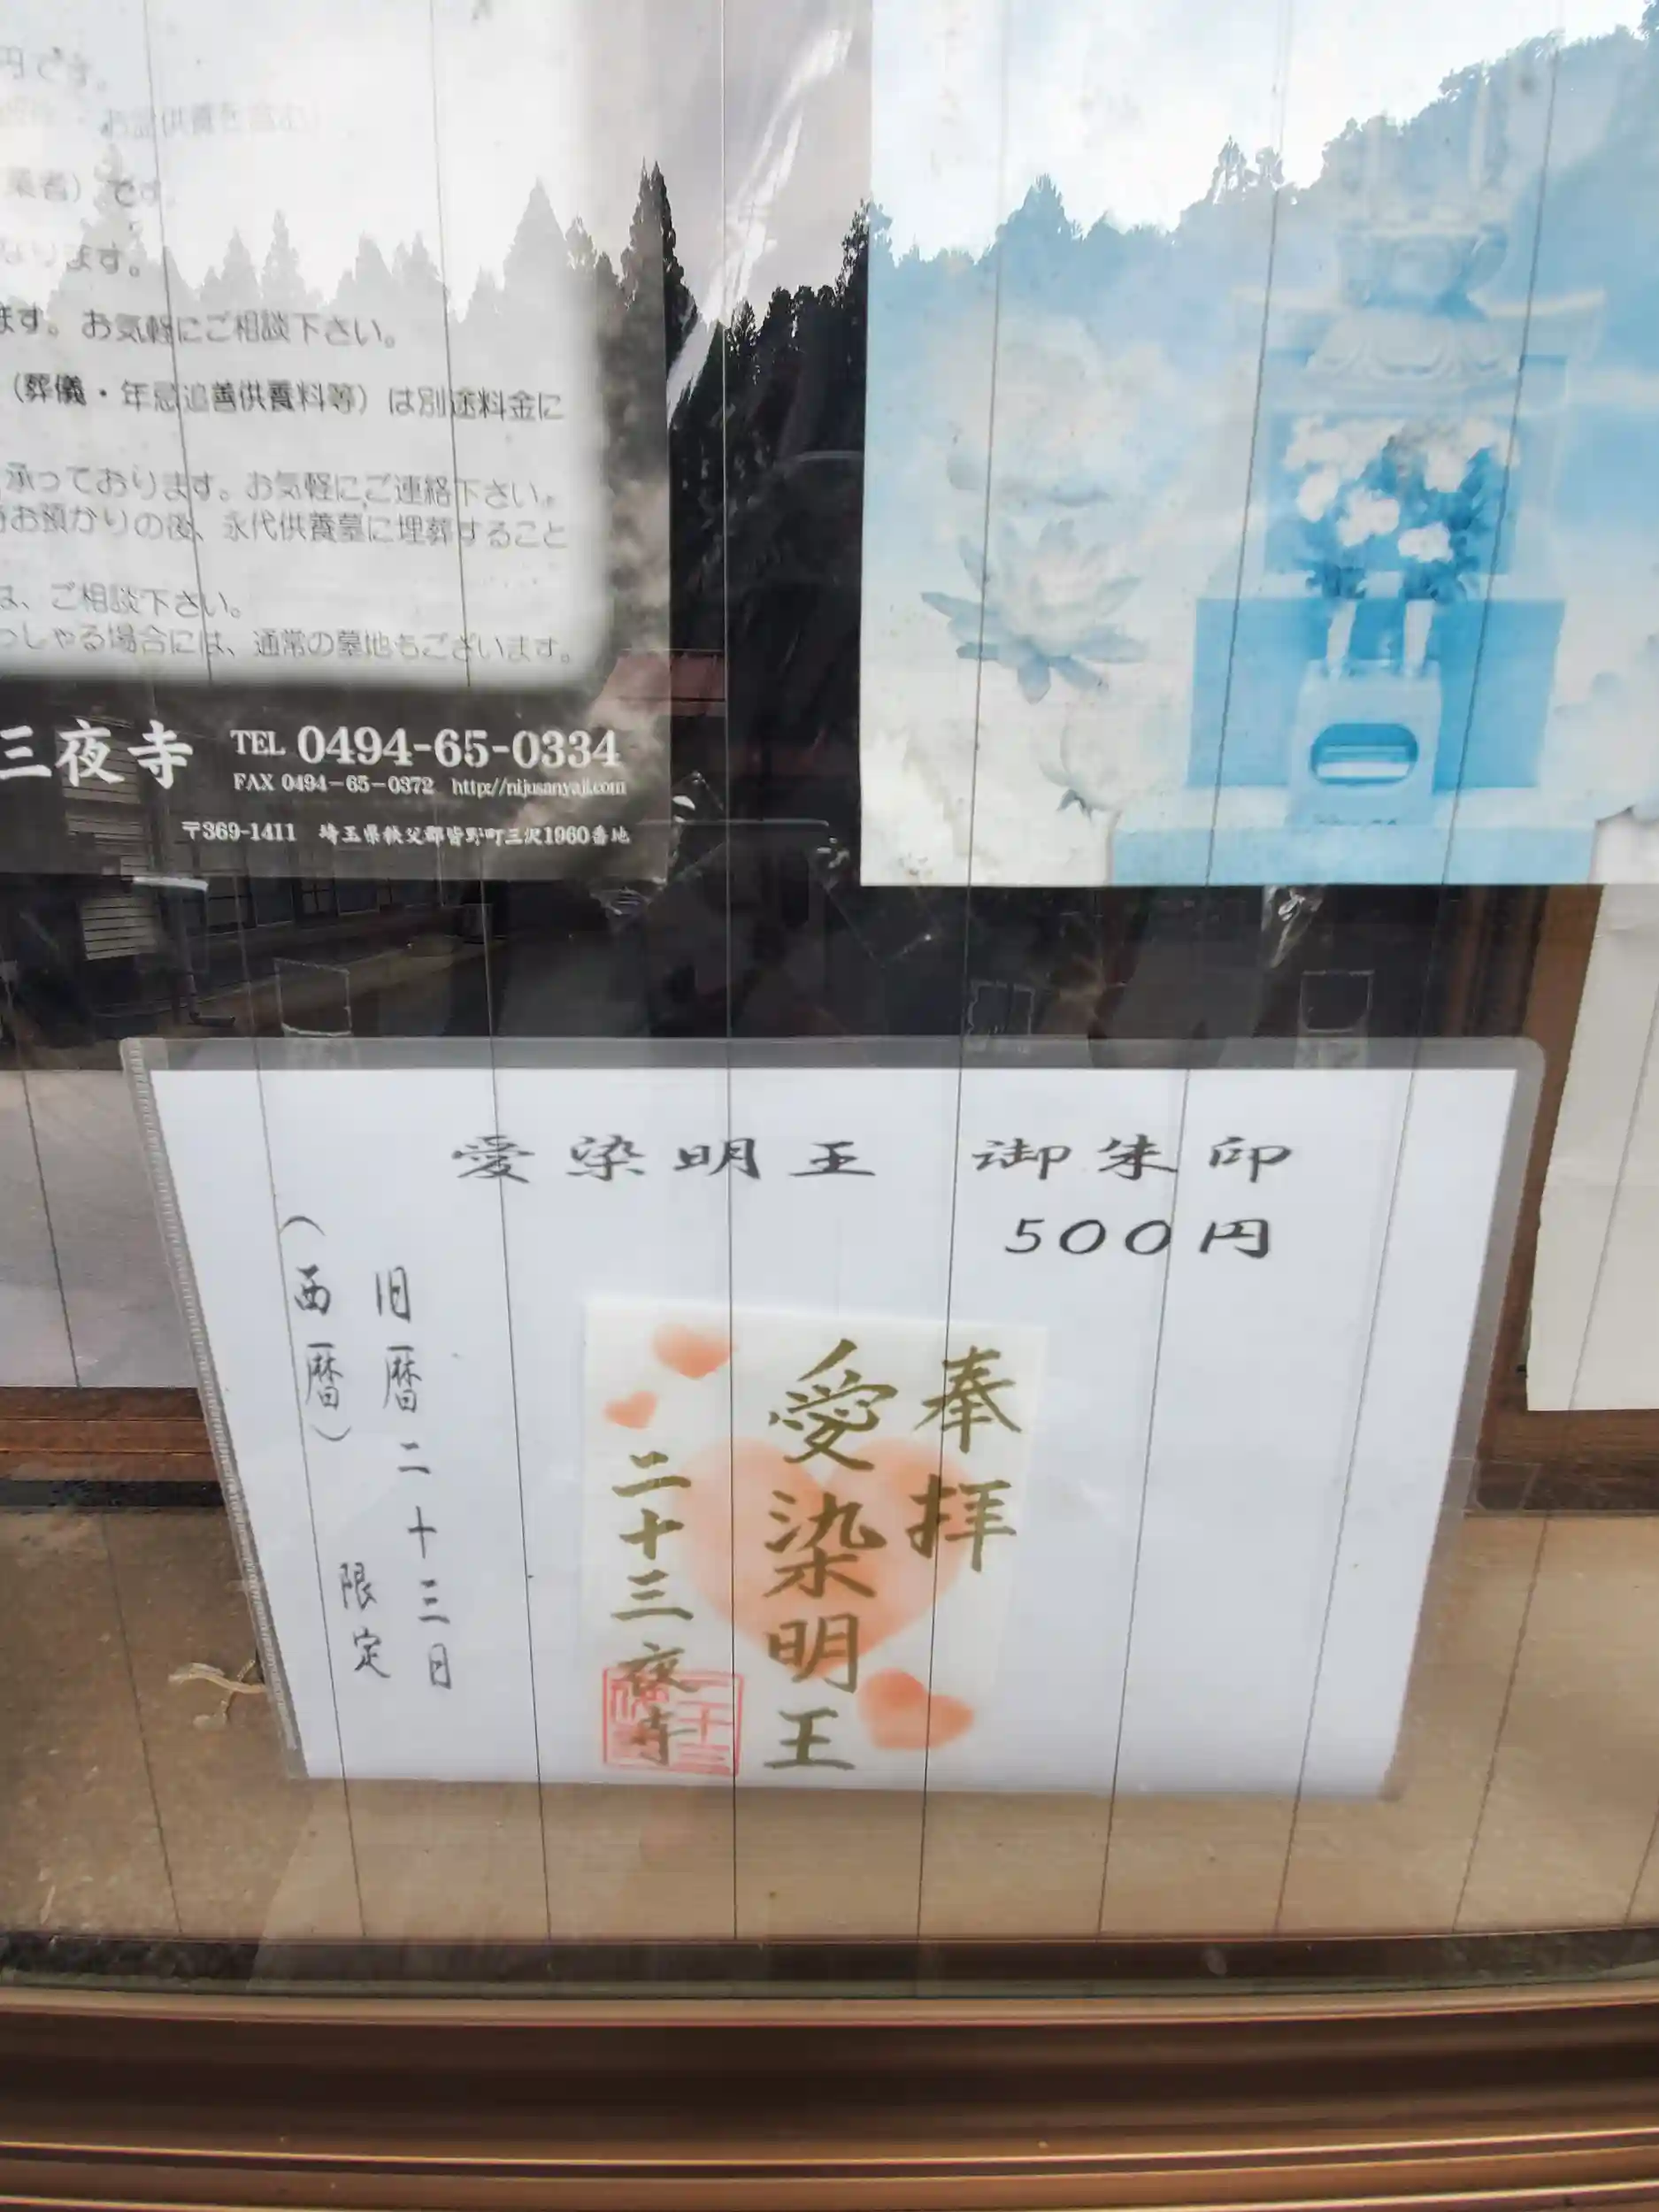 円です。
お盆供養を含む）
業者）です。
なります。
ます。お気軽にご相談下さい。
（葬儀・年忌追善供養料等）は別途料金に
承っております。お気軽にご連絡下さい。
お預かりの後、永代供養墓に埋葬すること
は、ご相談下さい。
っしゃる場合には、通常の墓地もございます。
三夜寺
TEL 0494-65-0334
FAX 0494-65-0372 http://nijusanyaji.com
〒369-1411 埼玉県秩父郡皆野町三沢1960番地
愛染明王 御朱印
500円
奉拝
愛染明王
二十三夜寺
旧暦二十三日
（西暦）
限定